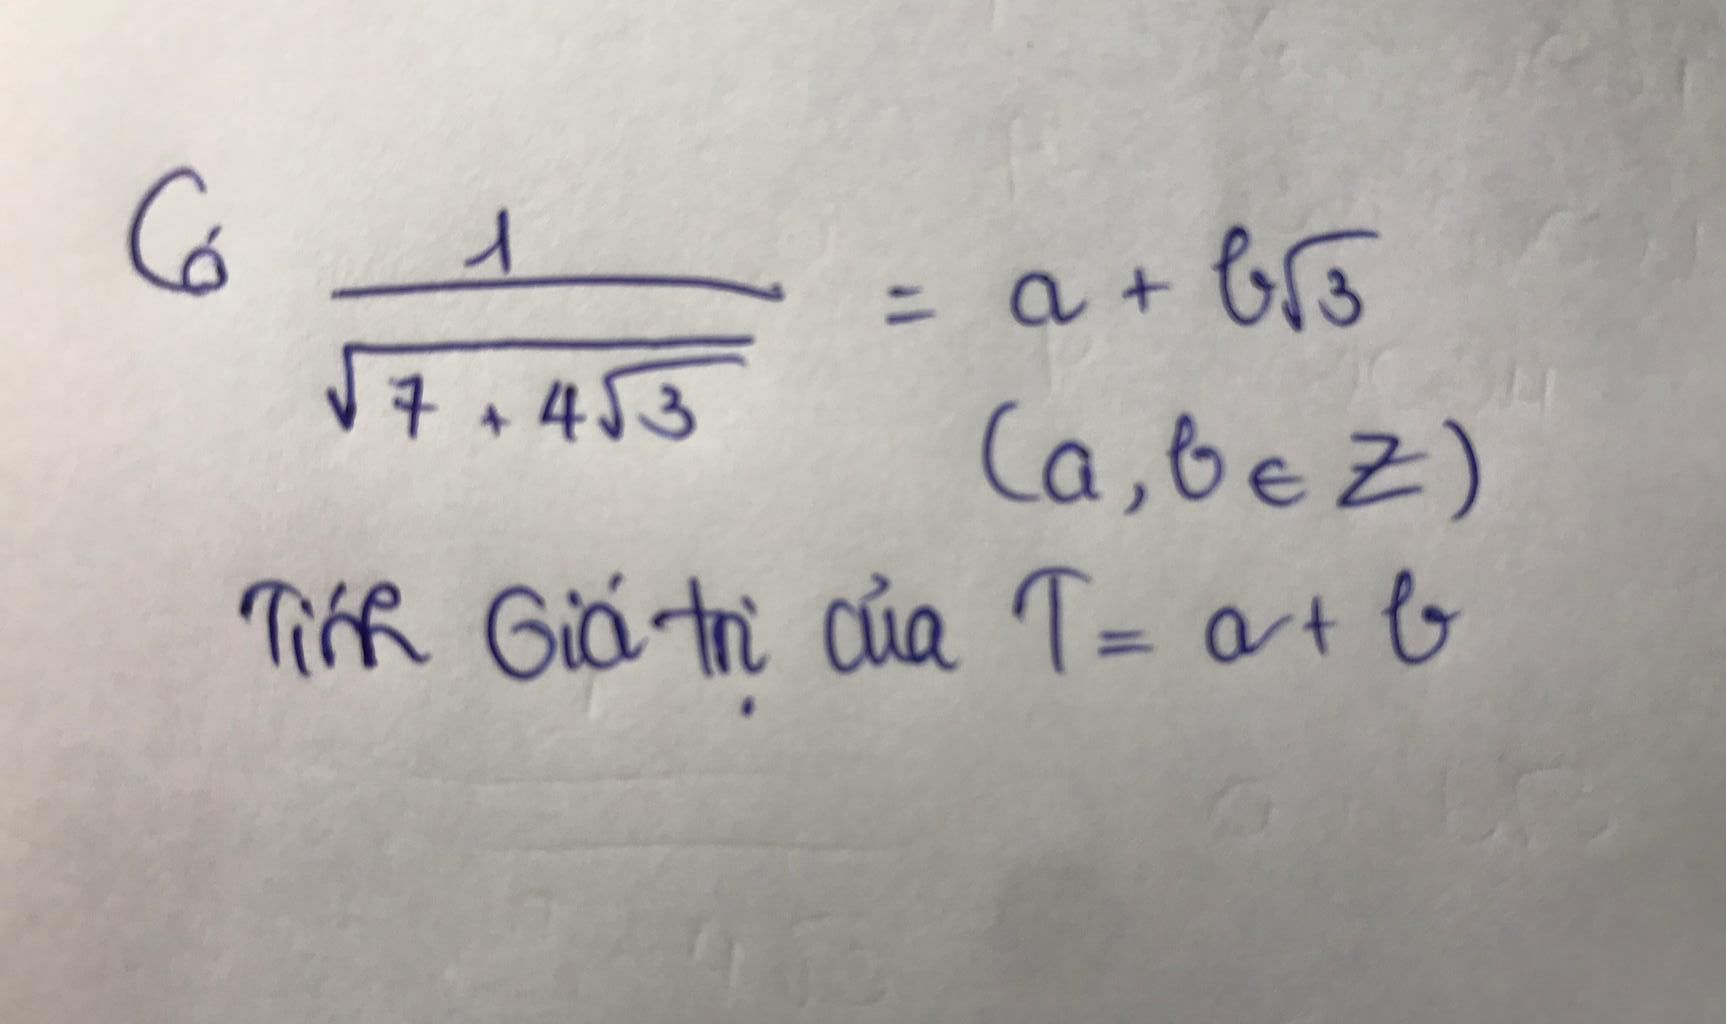 Có 1/√(7 + 4√3) = a + b√3
(a, b ∈ Z)
Tính Giá trị của T = a + b